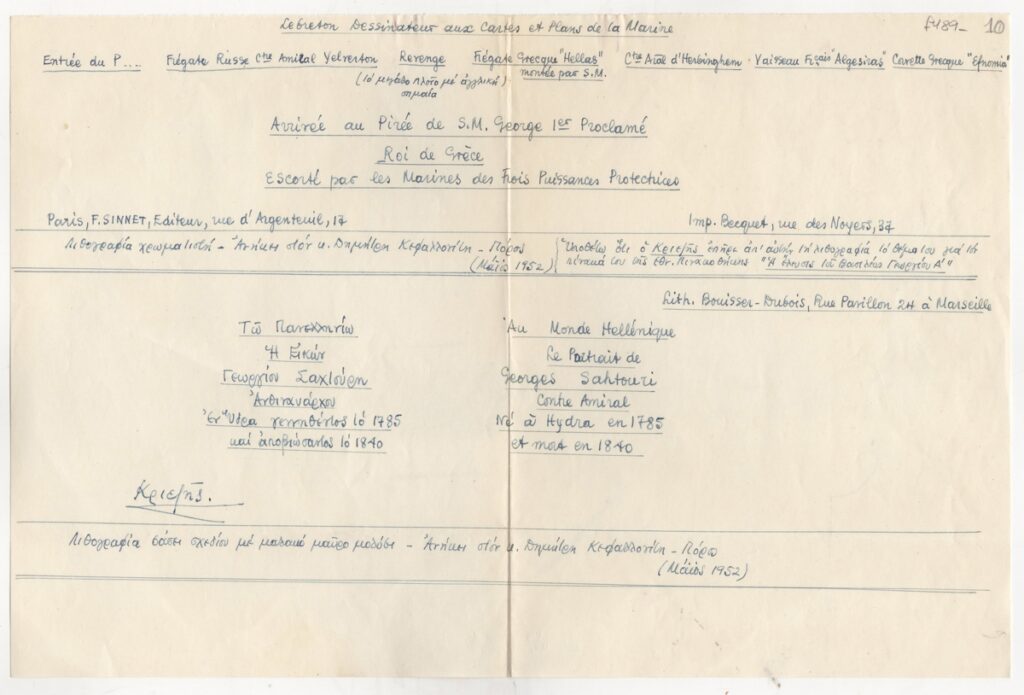 Lebreton Dessinateur aux Cartes et Plans de la Marine
f489- 10
Entrée du P.... Frégate Russe Ctre Amiral Yelverton Revenge Frégate Grecque "Hellas" Ctre Atal d'Herbinghem - Vaisseau Frçais "Algesiras" Corvette Grecque "Efnomia"
(τό μεγάλο πλοῖο μέ ἀγγλική) montée par S.M.
σημαία
Arrivée au Pirée de S.M. George 1er Proclamé
Roi de Grèce
Escorté par les Marines des Trois Puissances Protectrices
Paris, F. SINNET, Editeur, rue d'Argenteuil, 17
Imp. Becquet, rue des Noyers, 37
Λιθογραφία χρωματιστή - Ἀνήκει στόν κ. Δημήτρη Κεφαλλονίτη - Πόρος
(Μάϊος 1952)
Ὑποθέτω ὅτι ὁ Κριεζῆς ἐπῆρε ἀπ' αὐτήν τή λιθογραφία τό θέμα του γιά τόν
πίνακά του τῆς Ἐθν. Πινακοθήκης "Ἡ ἔλευσις τοῦ Βασιλέως Γεωργίου Α'"
Lith. Bouisser-Dubois, Rue Pavillon 24 à Marseille
Τῷ Πανελληνίῳ
Ἡ Εἰκών
Γεωργίου Σαχτούρη
Ἀντιναυάρχου
Ἐν Ὕδρᾳ γεννηθέντος τό 1785
καί ἀποβιώσαντος τό 1840
Au Monde Hellénique
Le Portrait de
Georges Sahtouri
Contre Amiral
Né à Hydra en 1785
et mort en 1840
Κριεζῆς.
Λιθογραφία βάσει σχεδίου μέ μαλακό μαῦρο μολύβι - Ἀνήκει στόν κ. Δημήτρη Κεφαλλονίτη - Πόρο
(Μάϊος 1952)